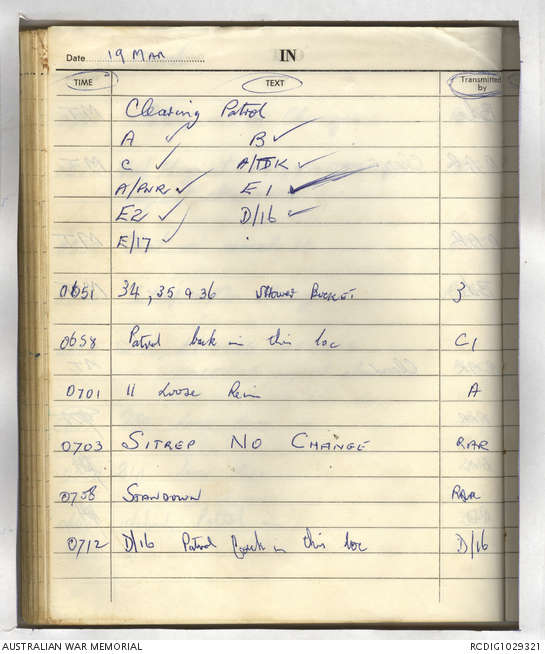 Date 19 MAR IN
TIME TEXT Transmitted by
Clearing Patrol
A ✓ B ✓
C ✓ A/TDK ✓
A/PNR ✓ E1 ✓
E2 ✓ D/16 ✓
E/17 ✓
0651 34, 35 & 36 SHOWER BUCKET 3
0658 Patrol back in this loc C1
0701 11 Loose Rein A
0703 SITREP NO CHANGE RAR
0708 STANDOWN RAR
0712 D/16 Patrol back in this loc D/16
AUSTRALIAN WAR MEMORIAL RCDIG1029321